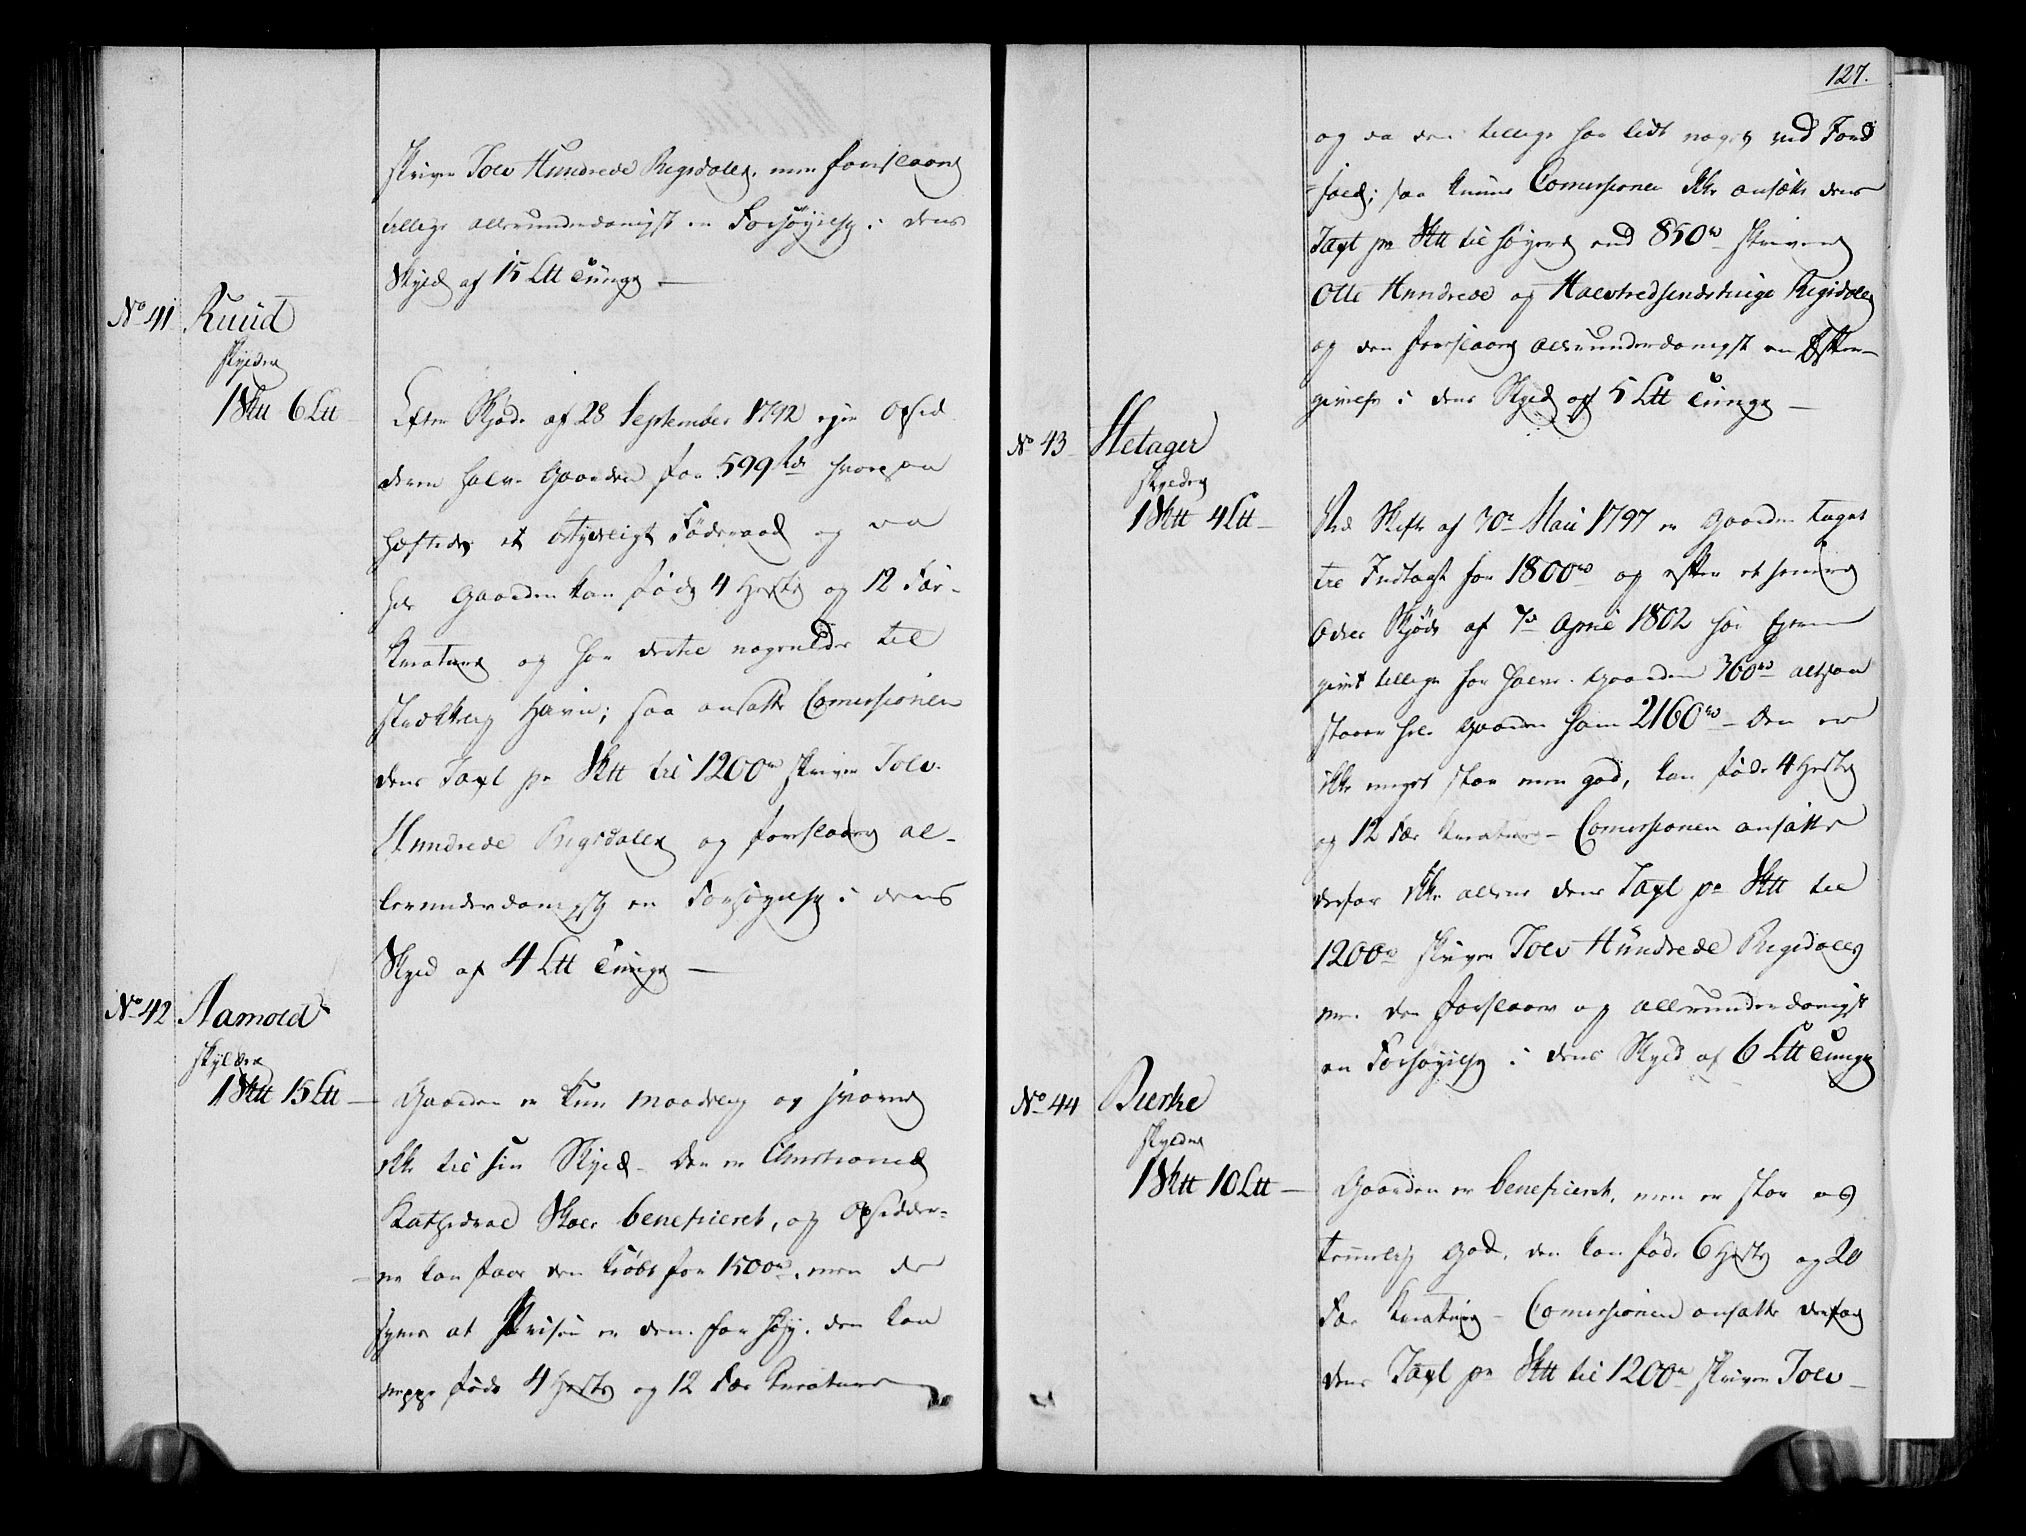 skriver Tolv Hundrede Rigsdaler, men foreslaaer
tillige allerunderdanigst en Forhøyelse i dens
Skyld af 15 Ltt Tunge —
No 41 Ruud
skylder
1 Sktt 6 Ltt
Efter Skjøde af 28 September 1792 ejer Opsid
deren halve Gaarden for 599 Rdr hvorpaa
hæftede et betydeligt Føderaad og da
hele Gaarden kan føde 4 Heste og 12 Fæe-
kreature og har dertil nogenledes til
strækkelig Havn; saa ansatte Comissionen
dens Taxt pr Sktt til 1200 rd skriver Tolv
Hundrede Rigsdaler og foreslaaer al-
lerunderdanigst en Forhøyelse i dens
Skyld af 4 Ltt Tunge —
No 42 Aamold
skylder
1 Sktt 15 Ltt —
Gaarden er kun maadelig og svarer
ikke til sin Skyld – Den er Christiania
Kathedral Skole beneficeret, og Opsidder-
ne kan faae den kiøbt for 1500 rd, men de
synes at Prisen er dem for høy, den kan
neppe føde 4 Heste og 12 Fæe Kreature
127.
og da den tillige har lidt noget ved Jord
fald; saa kunne Comissionen ikke ansætte dens
Taxt pr Sktt til høyere end 850 rd skriver
Otte Hundrede og Halvtredsindstiuge Rigsdaler
og den foreslaaer allerunderdanigst en Efter-
givelse i dens Skyld af 5 Ltt Tunge —
No 43 Hetager
skylder
1 Sktt 4 Ltt —
Ved Skifte af 30te Maii 1797 er Gaarden taget
til Indtægt for 1800 rd og efter et senere
Odels Skjøde af 7de April 1802 har Ejeren
givet tillige for halve Gaarden 360 rd altsaa
staaer hele Gaarden ham 2160 rd – Den er
ikke meget stor men god, kan føde 4 Heste
og 12 Fæe Kreature – Comissionen ansatte
derfor ikke allene dens Taxt pr Sktt til
1200 rd skriver Tolv Hundrede Rigsdaler
men den foreslaaer og allerunderdanigst
en Forhøyelse i dens Skyld af 6 Ltt Tunge
No 44 Bierke
skylder
1 Sktt 10 Ltt —
Gaarden er beneficeret, men er stor og
temmelig god, den kan føde 6 Heste og 20
Fæe Kreature – Comissionen ansatte derfor
dens Taxt pr Sktt til 1200 rd skriver Tolv —